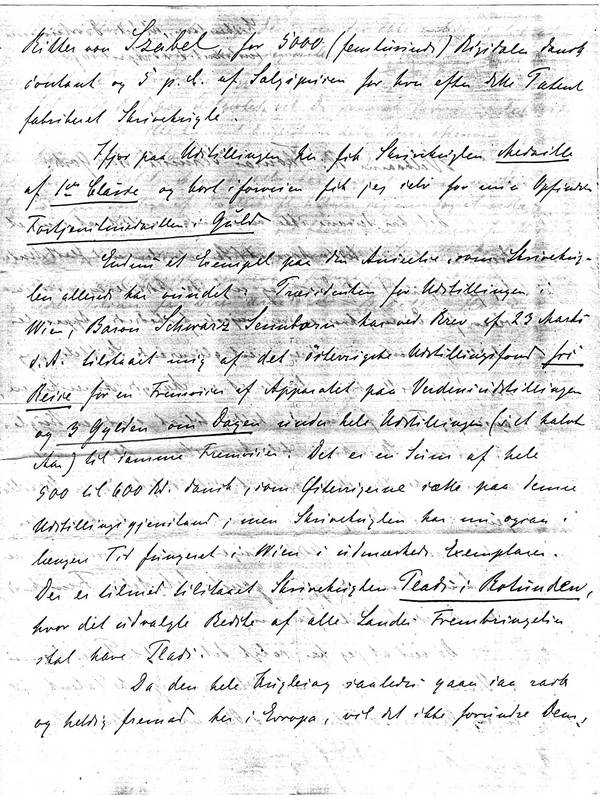 Ritter von Szabel, for 5000 (femtusinde) Rigsdaler dansk
contant og 5 p. C. af Salgsprisen for hver efter dette Patent
fabrikeret Skrivekugle.
Ifjor paa Udstillingen her fik Skrivekuglen Medaille
af 1ste Classe og kort iforveien fik jeg selv for min Opfindelse
Fortjenstmedaillen i Guld
Endnu et Exempel paa den Anseelse, som Skrivekug-
len allerede har vundet: Præsidenten for Udstillingen i
Wien, Baron Schwarz Senborn har ved Brev af 23 Marts
d. A. tilstaaet mig af det österrigske Udstillingsfond fri
Reise for en Fremviser af Apparatet paa Verdensudstillingen
og 3 Gylden om Dagen under hele Udstillingen (i et halvt
Aar) til samme Fremviser. Det er en Sum af hele
500 til 600 Rd. dansk, som Østerrigerne sætte paa denne
Udstillingsgjenstand; men Skrivekuglen har nu ogsaa i
længere Tid fungeret i Wien i udmærkede Exemplarer.
Der er tilmed tilstaaet Skrivekuglen Plads i Rotunden,
hvor det udvalgte Bedste af alle Landes Frembringelser
skal have Plads.
Da den hele Sag saaledes gaaer saa rask
og heldig fremad her i Evropa, vil det ikke forundre Dem,